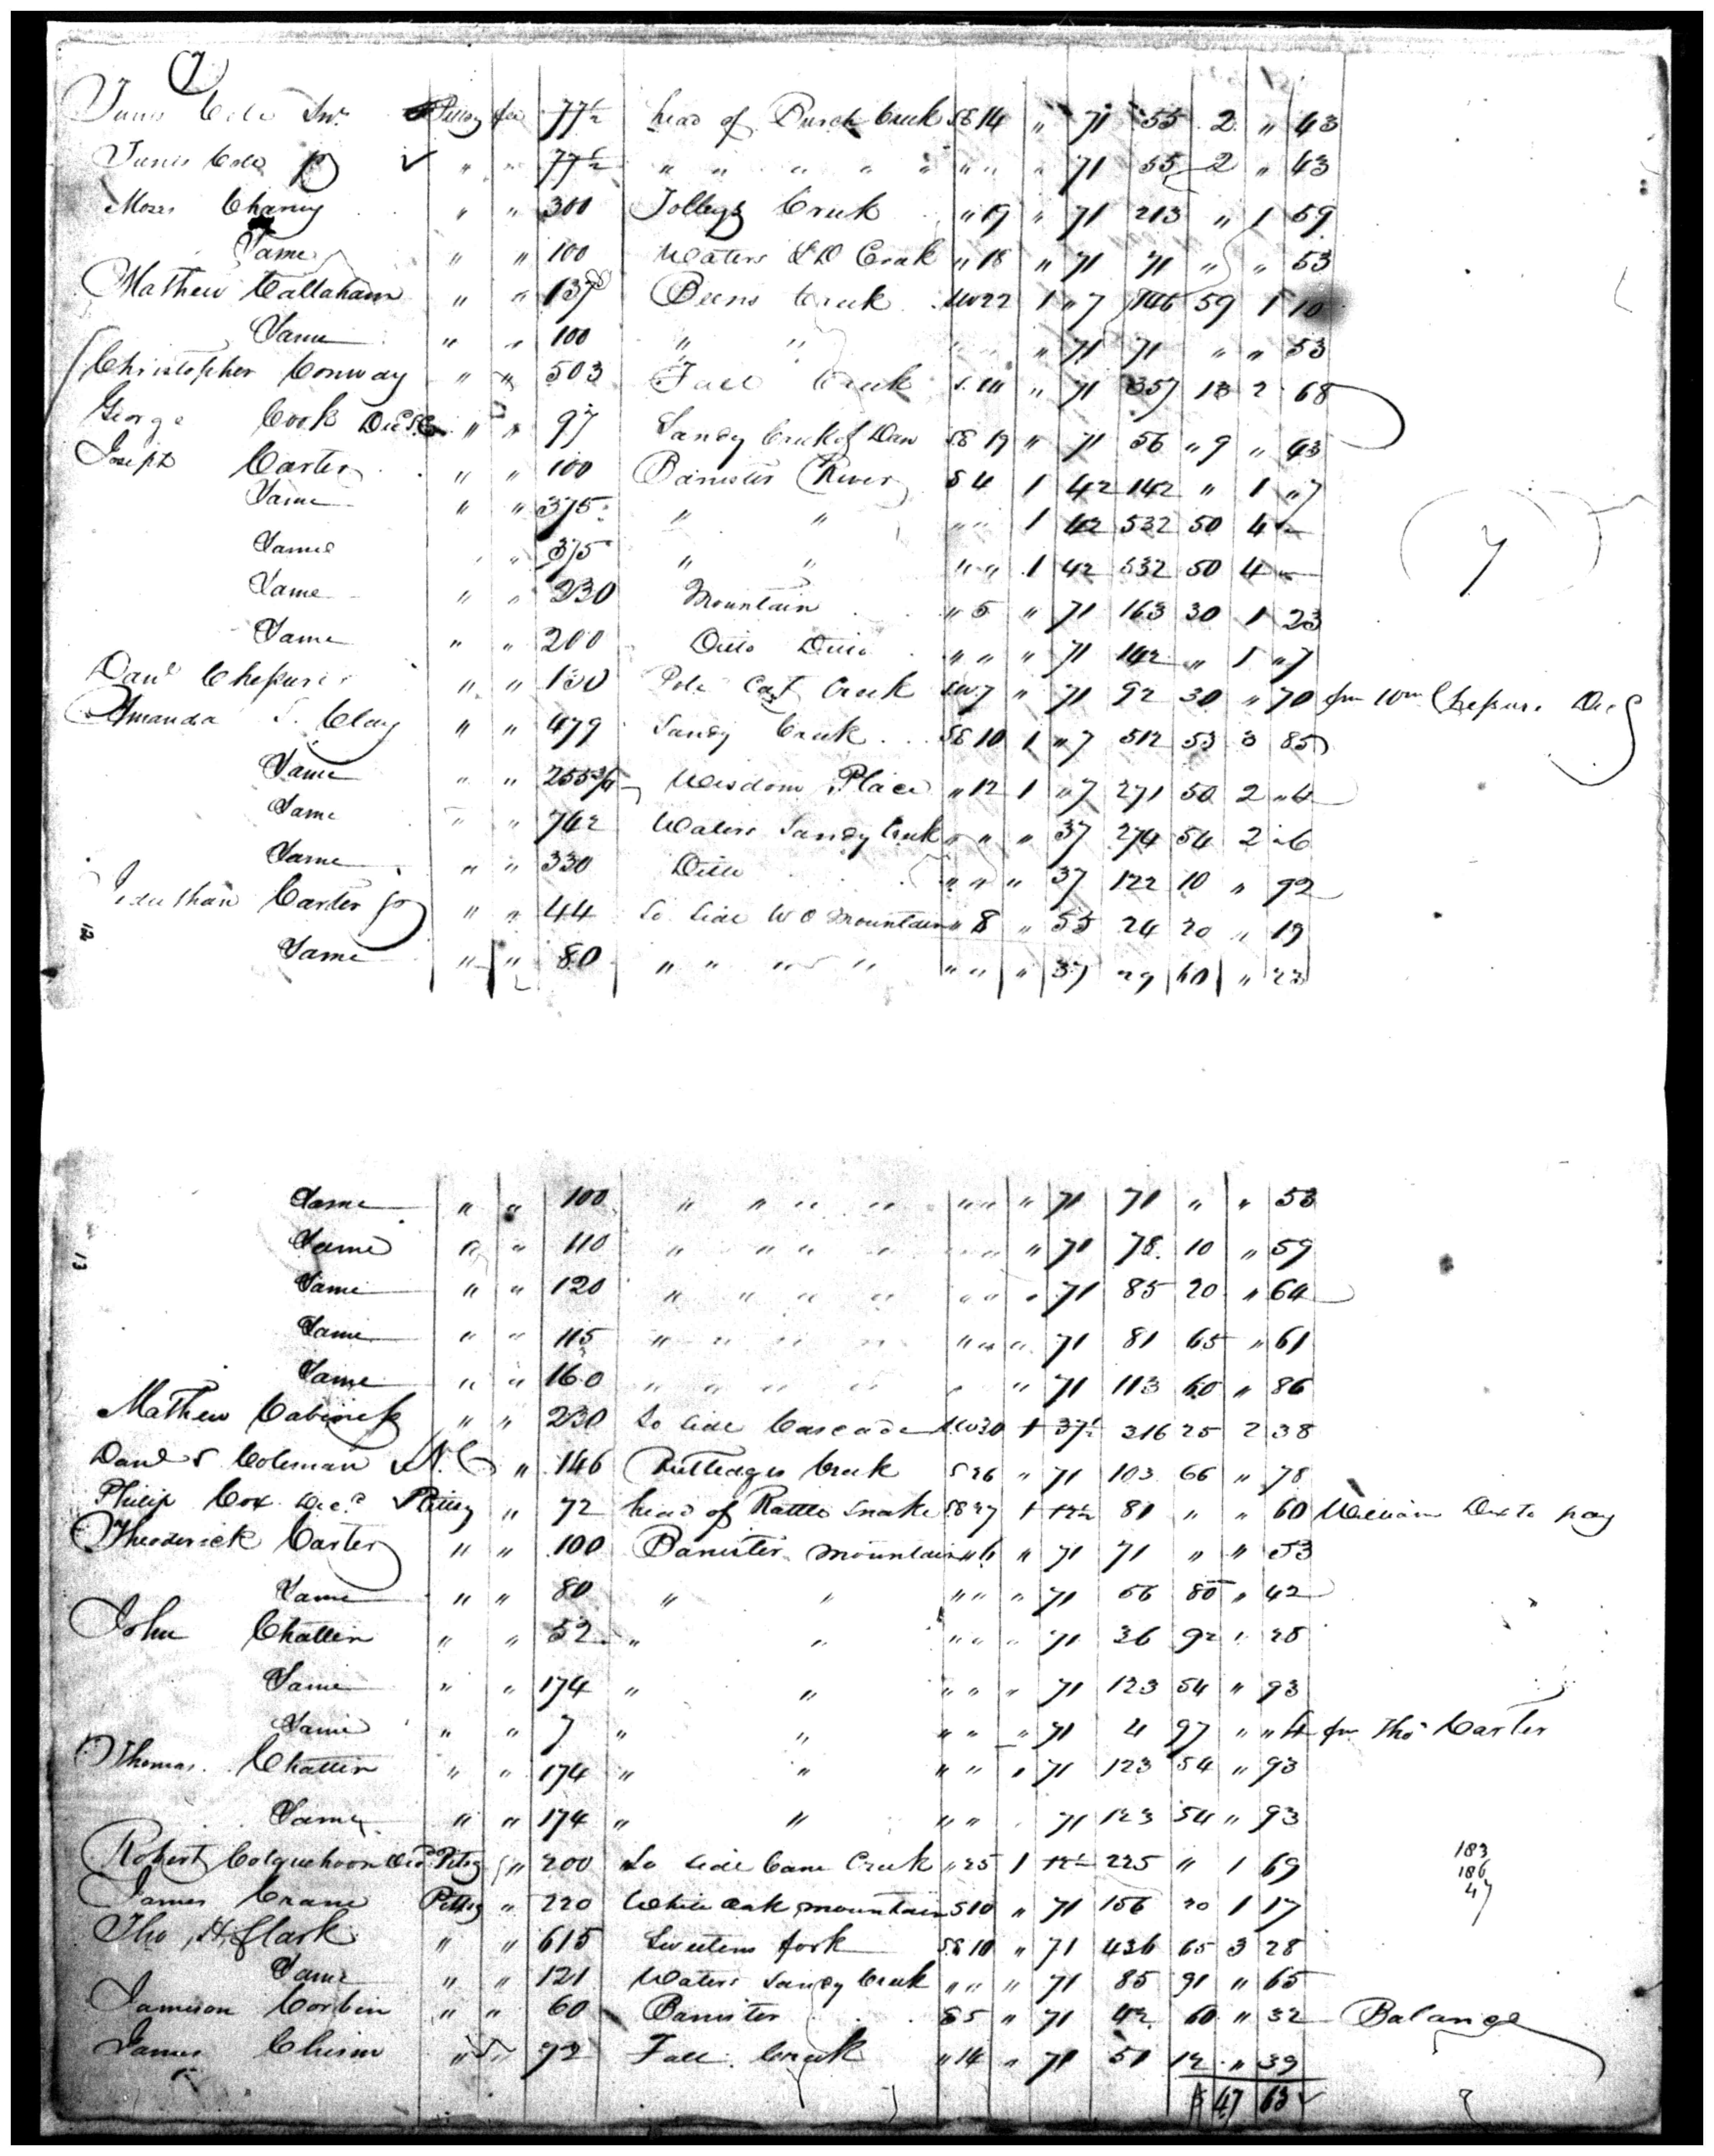 (7)
Cole Senr Pittsy fee 77½ head of Burch Creek SE 14 " 71 55 2 " 43
Cole Jr ✓ " " 77½ " " " " " " " " 71 55 2 " 43
Moses Chaney " " 300 Tolleys Creek " 19 " 71 213 " 1 59
Same " " 100 Waters Creek " 18 " 71 71 " " 53
Mathew Callaham " " 137 Creek SW 22 1 " 7 146 59 1 10
Same " " 100 " " " " " 71 71 " " 53
Christopher Conway " " 503 Fall Creek " 71 357 13 2 68
George Cook Decd " " 97 Sandy Creek of Dan SE 19 " 71 56 " 9 " 43
Joseph Carter " " 100 Banister River S 4 1 42 142 " 1 " 7
Same " " 375 " " " " 1 42 532 50 4 –
Same " " 375 " " " " 1 42 532 50 4 –
7
Same " " 230 Mountain " 5 " 71 163 30 1 23
Same " " 200 Ditto Ditto " " " 71 142 " 1 " 7
Danl " " 130 Pole Cat Creek SW 7 " 71 92 30 " 70 fm Wm Dec
Amanda S. Clay " " 479 Sandy Creek SE 10 1 " 7 512 53 3 85
Same " " 255¾ Wisdom Place " 12 1 " 7 271 50 2 " 4
Same " " 742 Waters Sandy Creek " " " 37 274 54 2 " 6
Same " " 330 Ditto " " " 37 122 10 " 92
Carter Jr " " 44 So side W O Mountain " 8 " 55 24 20 " 19
12
Same " " 80 " " " " " " " 37 29 60 " 23
Same " " 100 " " " " " " " 71 71 " " 53
Same " " 110 " " " " " " " 71 78 10 " 59
13
Same " " 120 " " " " " " " 71 85 20 " 64
Same " " 115 " " " " " " " 71 81 65 " 61
Same " " 160 " " " " " " " 71 113 60 " 86
Mathew Cabiness " " 230 So side Cascade SW 30 1 37½ 316 25 2 38
Danl S Coleman N.C " 146 Rutledges Creek S 26 " 71 103 66 " 78
Philip Cox Decd Pittsy " 72 head of Rattle Snake SE 27 1 12½ 81 " " 60 William to pay
Theoderick Carter " " 100 Banister Mountain " 6 " 71 71 " " 53
Same " " 80 " " " " " 71 56 80 " 42
John Chattin " " 52 " " " " " 71 36 92 " 28
Same " " 174 " " " " " 71 123 54 " 93
Same " " 7 " " " " " 71 4 97 " " 4 fm Tho Carter
Thomas Chattin " " 174 " " " " " 71 123 54 " 93
Same " " 174 " " " " " 71 123 54 " 93
Robert Colquehoon Decd Pittsy " 200 So side Cane Creek " 25 1 12½ 225 " 1 69
183
186
47
James Crane Pittsy " 220 White Oak Mountain S 10 " 71 156 20 1 17
Tho H, Clark " " 615 Sweetens fork SE 10 " 71 436 65 3 28
Same " " 121 Waters Sandy Creek " " " 71 85 91 " 65
Jameson Corbin " " 60 Banister S 5 " 71 42 60 " 32 Balance
James Chism " " 72 Fall Creek " 14 " 71 51 12 " 39
$ 47 63 ✓